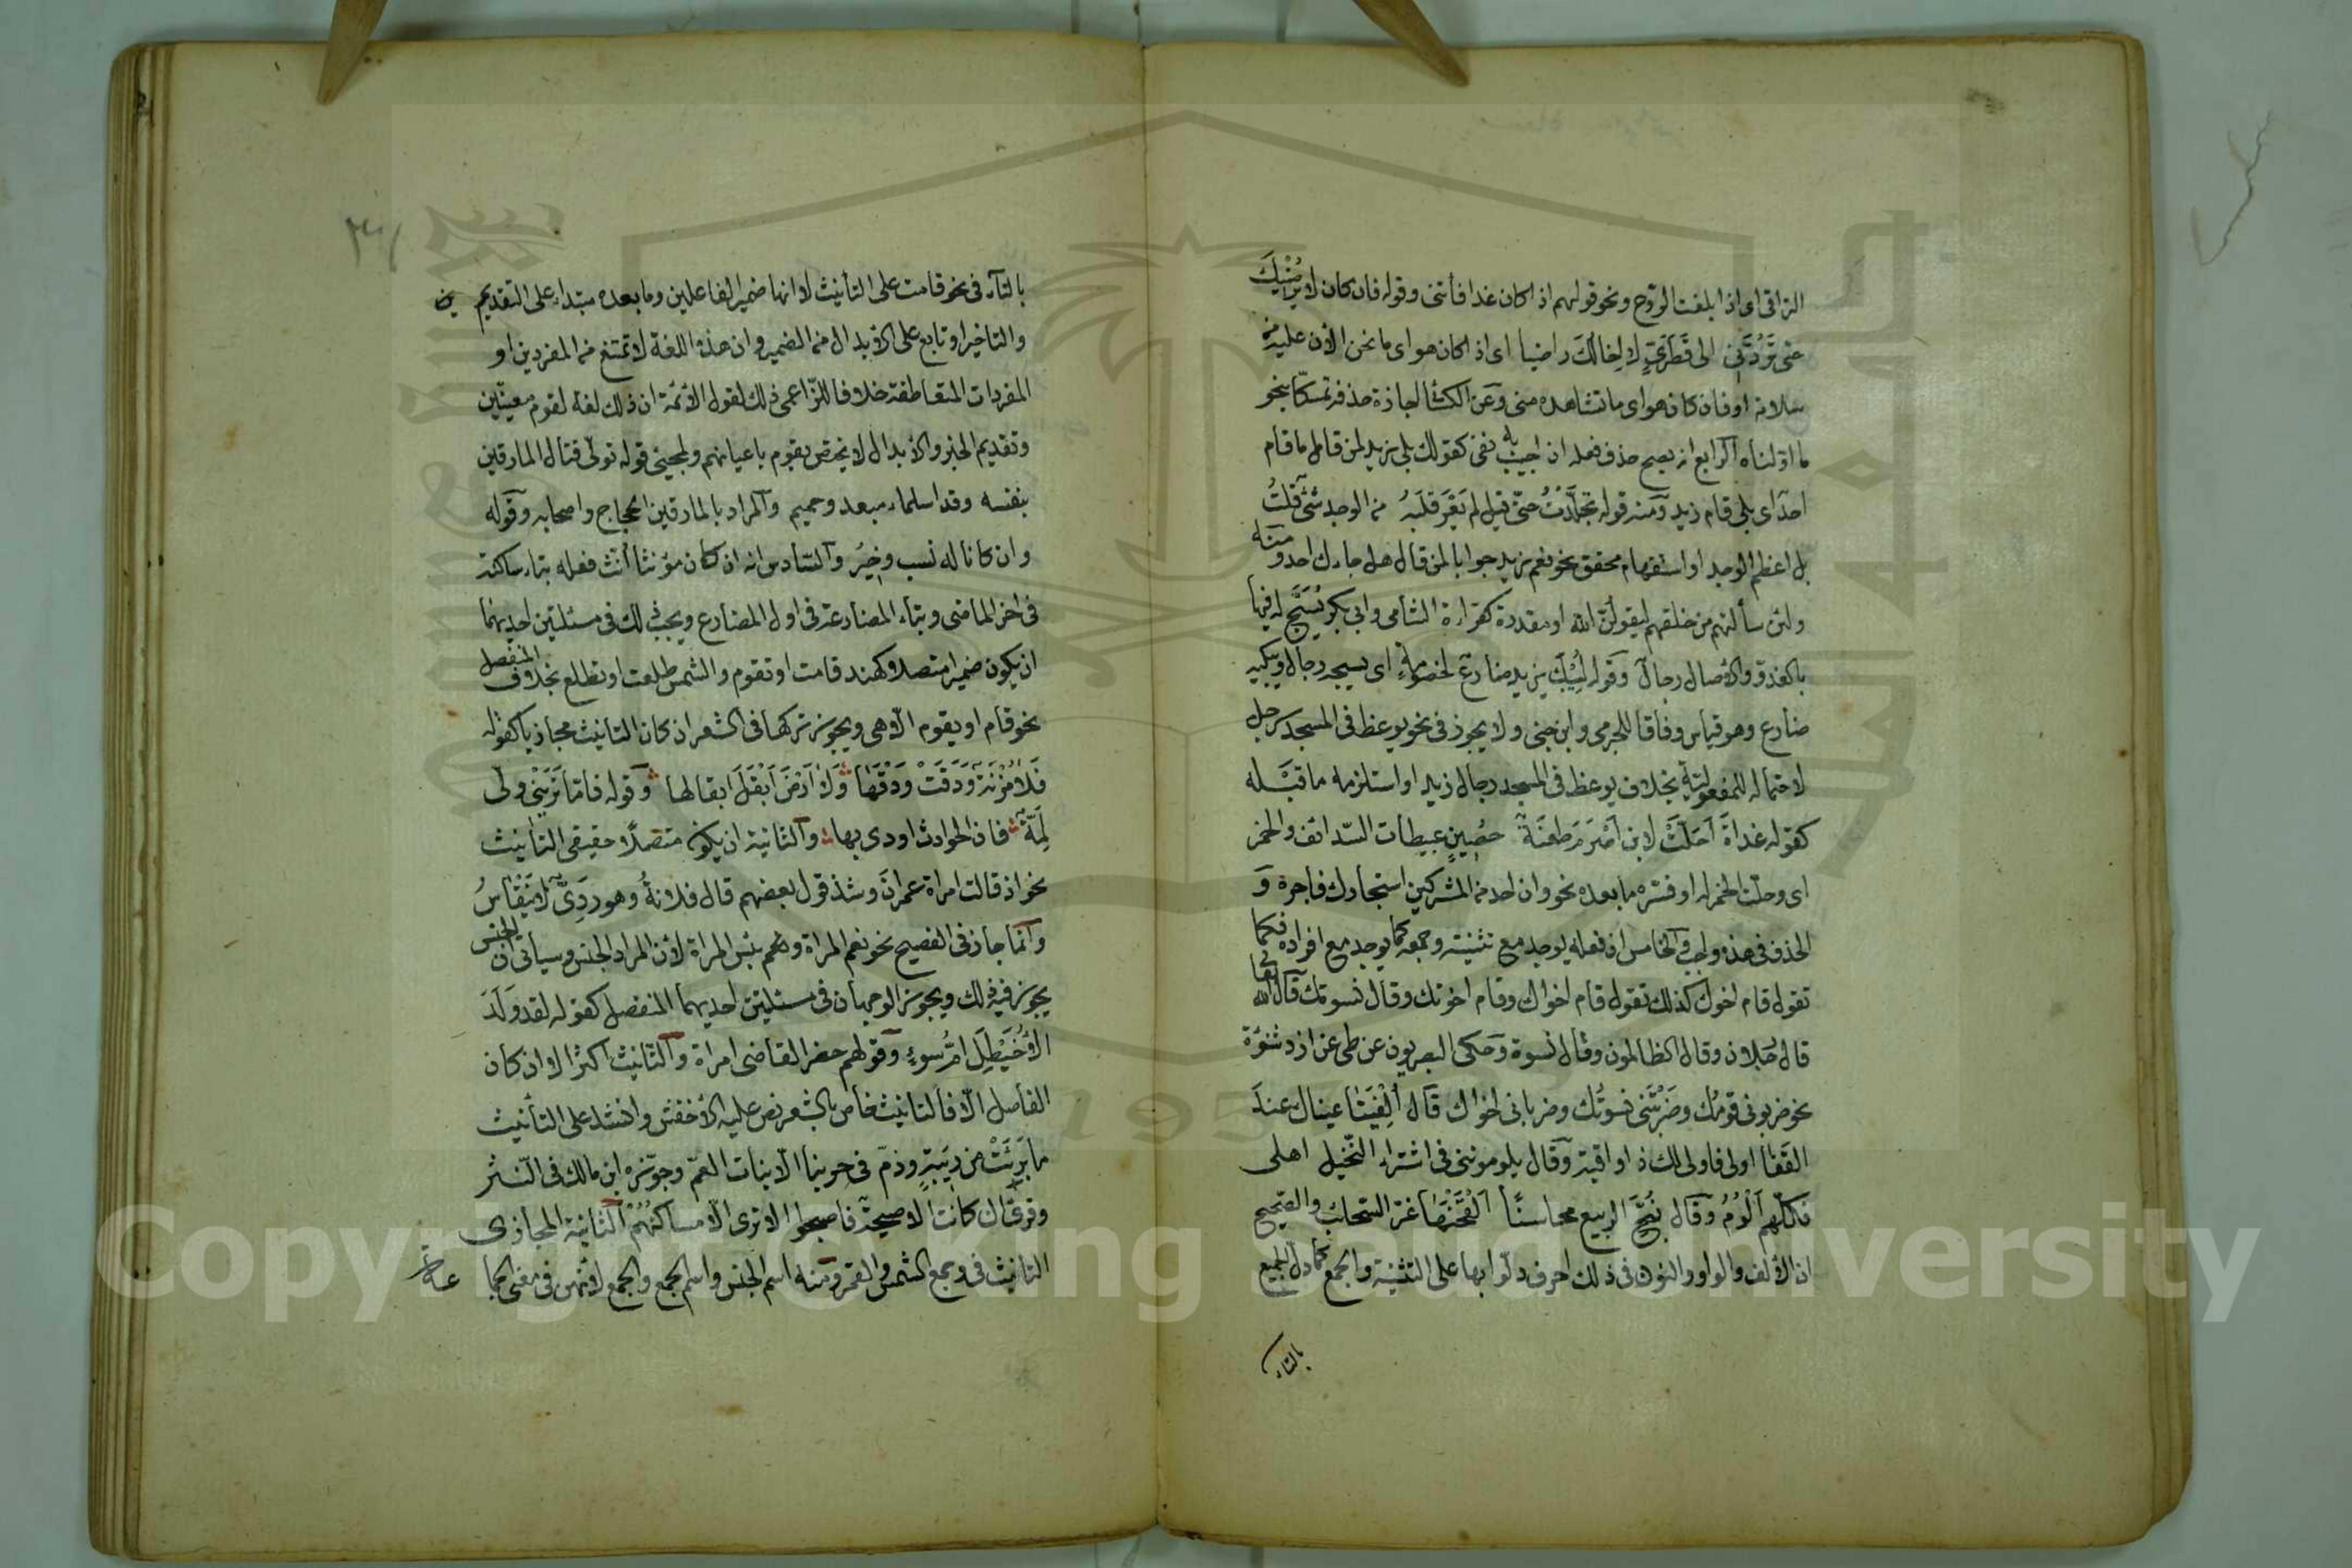 التراقى اى اذا بلغت الروح ونحو قولهم اذا كان غدا فأتنى وقوله فان كان لا يُرْضِيْكَ
حتى تَرُدَّنِى الى قَطَرِىٍّ لا اِخالُكَ راضيا اى اذا كان هو اى ما نحن الأن عليه من
سلامة او فان كان هو اى ما تشاهده منى وعن الكسائ اجازة حذفه تمسكا بنحو
ما اوّلناه الرابع انه يصح حذف فعله ان اجيب به نفى كقولك بلى زيد لمن قال ما قام
احد اى بلى قام زيد ومنه قوله تجلّدتُ حتّى قيل لم يَعْرَ قلبَهُ من الوجد شئ قلتُ
بل اعظم الوجد او استفهام محقق نحو نعم زيد جوابا لمن قال هل جاءك احد ومنه
ولئن سألتهم من خلقهم ليقولنّ الله او مقدر كقراءة الشامى وابى بكر يُسَبَّح له فيها
بالغدوّ والأصال رجال وقوله لِيُبْكَ يزيد ضارع لخصومةٍ اى يسبحه رجال ويبكيه
ضارع وهو قياس وفاقا للجرمى وابن جنى ولا يجوز فى نحو يوعظ فى المسجد رجل
لاحتماله للمفعوليّة بخلاف يوعظ فى المسجد رجال زيد او استلزمه ما قبله
كقوله غداةَ اَحَلَّتْ لابن اَصْرَمَ طعنَةٌ حصينٍ عبيطات السدائف والخمر
اى وحلّت الخمر له او فسّره ما بعده نحو وان احد من المشركين استجارك فاجره و
الحذف فى هذه واجب والخامس ان فعله يوحد مع تثنيته وجمعه كما يوحد مع افراده فكما
تقول قام اخوك كذلك تقول قام اخواك وقام اخوتك وقال نسوتك قال الله تعا
قال رجلان وقال الظالمون وقال نسوة وحكى البصريون عن طى عن ازد شنوءة
نحو ضربونى قومُك وضربْنَنى نسوتُك وضربانى اخواك قال أُلْفِيَتَا عيناك عند
القَفَا اولى فاولى لك ذا واقية وقال يلوموننى فى اشتراء النّخيل اهلى
فكلّهم اَلْوَمُ وقال نُتِجَ الربيع محاسنًا اَلْقَحْنَها غرّ السّحائب والصّحيح
ان الألف والواو والنون فى ذلك احرف دلّوا بها على التثنية والجمع كما دلّ الجميع
بالتاء
بالتاء فى نحو قامت على التأنيث لا انها ضمير الفاعلين وما بعده مبتداء على التقديم
والتاخير او تابع على الابدال من الضمير وان هذه اللغة لا تمتنع من المفردين او
المفردات المتعاطفة خلافا للزاعمى ذلك لقول الأئمّة ان ذلك لغة لقوم معينين
وتقديم الخبر والابدال لا يختص بقوم باعيانهم ولمجئ قوله تولّى قتال المارقين
بنفسه وقد اسلماه مبعد وحميم والمراد بالمارقين الحجاج واصحابه وقوله
وان كانا له نسب وخِيْرُ والسّادس انه ان كان مؤنثا أنّث فعله بتاء ساكنة
فى اخر الماضى وبتاء المضارعة فى اول المضارع ويجب ذلك فى مسئلتين احديهما
ان يكون ضميرا متصلا كهند قامت او تقوم والشمس طلعت او تطلع بخلاف المنفصل
نحو قام او يقوم الّا هى ويجوز تركها فى الشعر ان كان التأنيث مجازيا كقوله
فَلا مُزْنَةٌ وَدَقَتْ وَدْقَهَا وَلا اَرْضَ اَبْقَلَ ابقالها وقوله فامّا تَرَيْنى ولى
لِمَّةٌ فان الحوادث اودى بها والثانية ان يكون متصلا حقيقى التأنيث
نحو اذ قالت امراة عمران وشذ قول بعضهم قال فلانةُ وهو رَدِىٌّ لا يَنْقَاسُ
وانّما جاز فى الفصيح نحو نعم المراة ونحو بئس المراة لأن المراد الجنس وسيأتى ان الجنس
يجوز فيه ذلك ويجوز الوجهان فى مسئلتين احديهما المنفصل كقوله لقد وَلَدَ
الأُخَيْطِلَ امُّ سوءٍ وقولهم حضر القاضى امراة والتّانيث اكثر الا ان كان
الفاصل الّا فالتانيث خاص بالشعر نص عليه الأخفش وانشد على التأنيث
ما بَرِئَتْ من رِيْبَةٍ وذمّ فى حربنا الّا بنات العمّ وجوّزه ابن مالك فى النّثر
وقرئ ان كانت الا صيحةٌ فاصبحوا لا ترى الّا مساكنُهُمْ الثانية المجازىّ
التانيث نحو وجمع الشمس والقمر ومنه اسم الجنس واسم الجمع والجمع لأنهن فى معنى الجما
عة